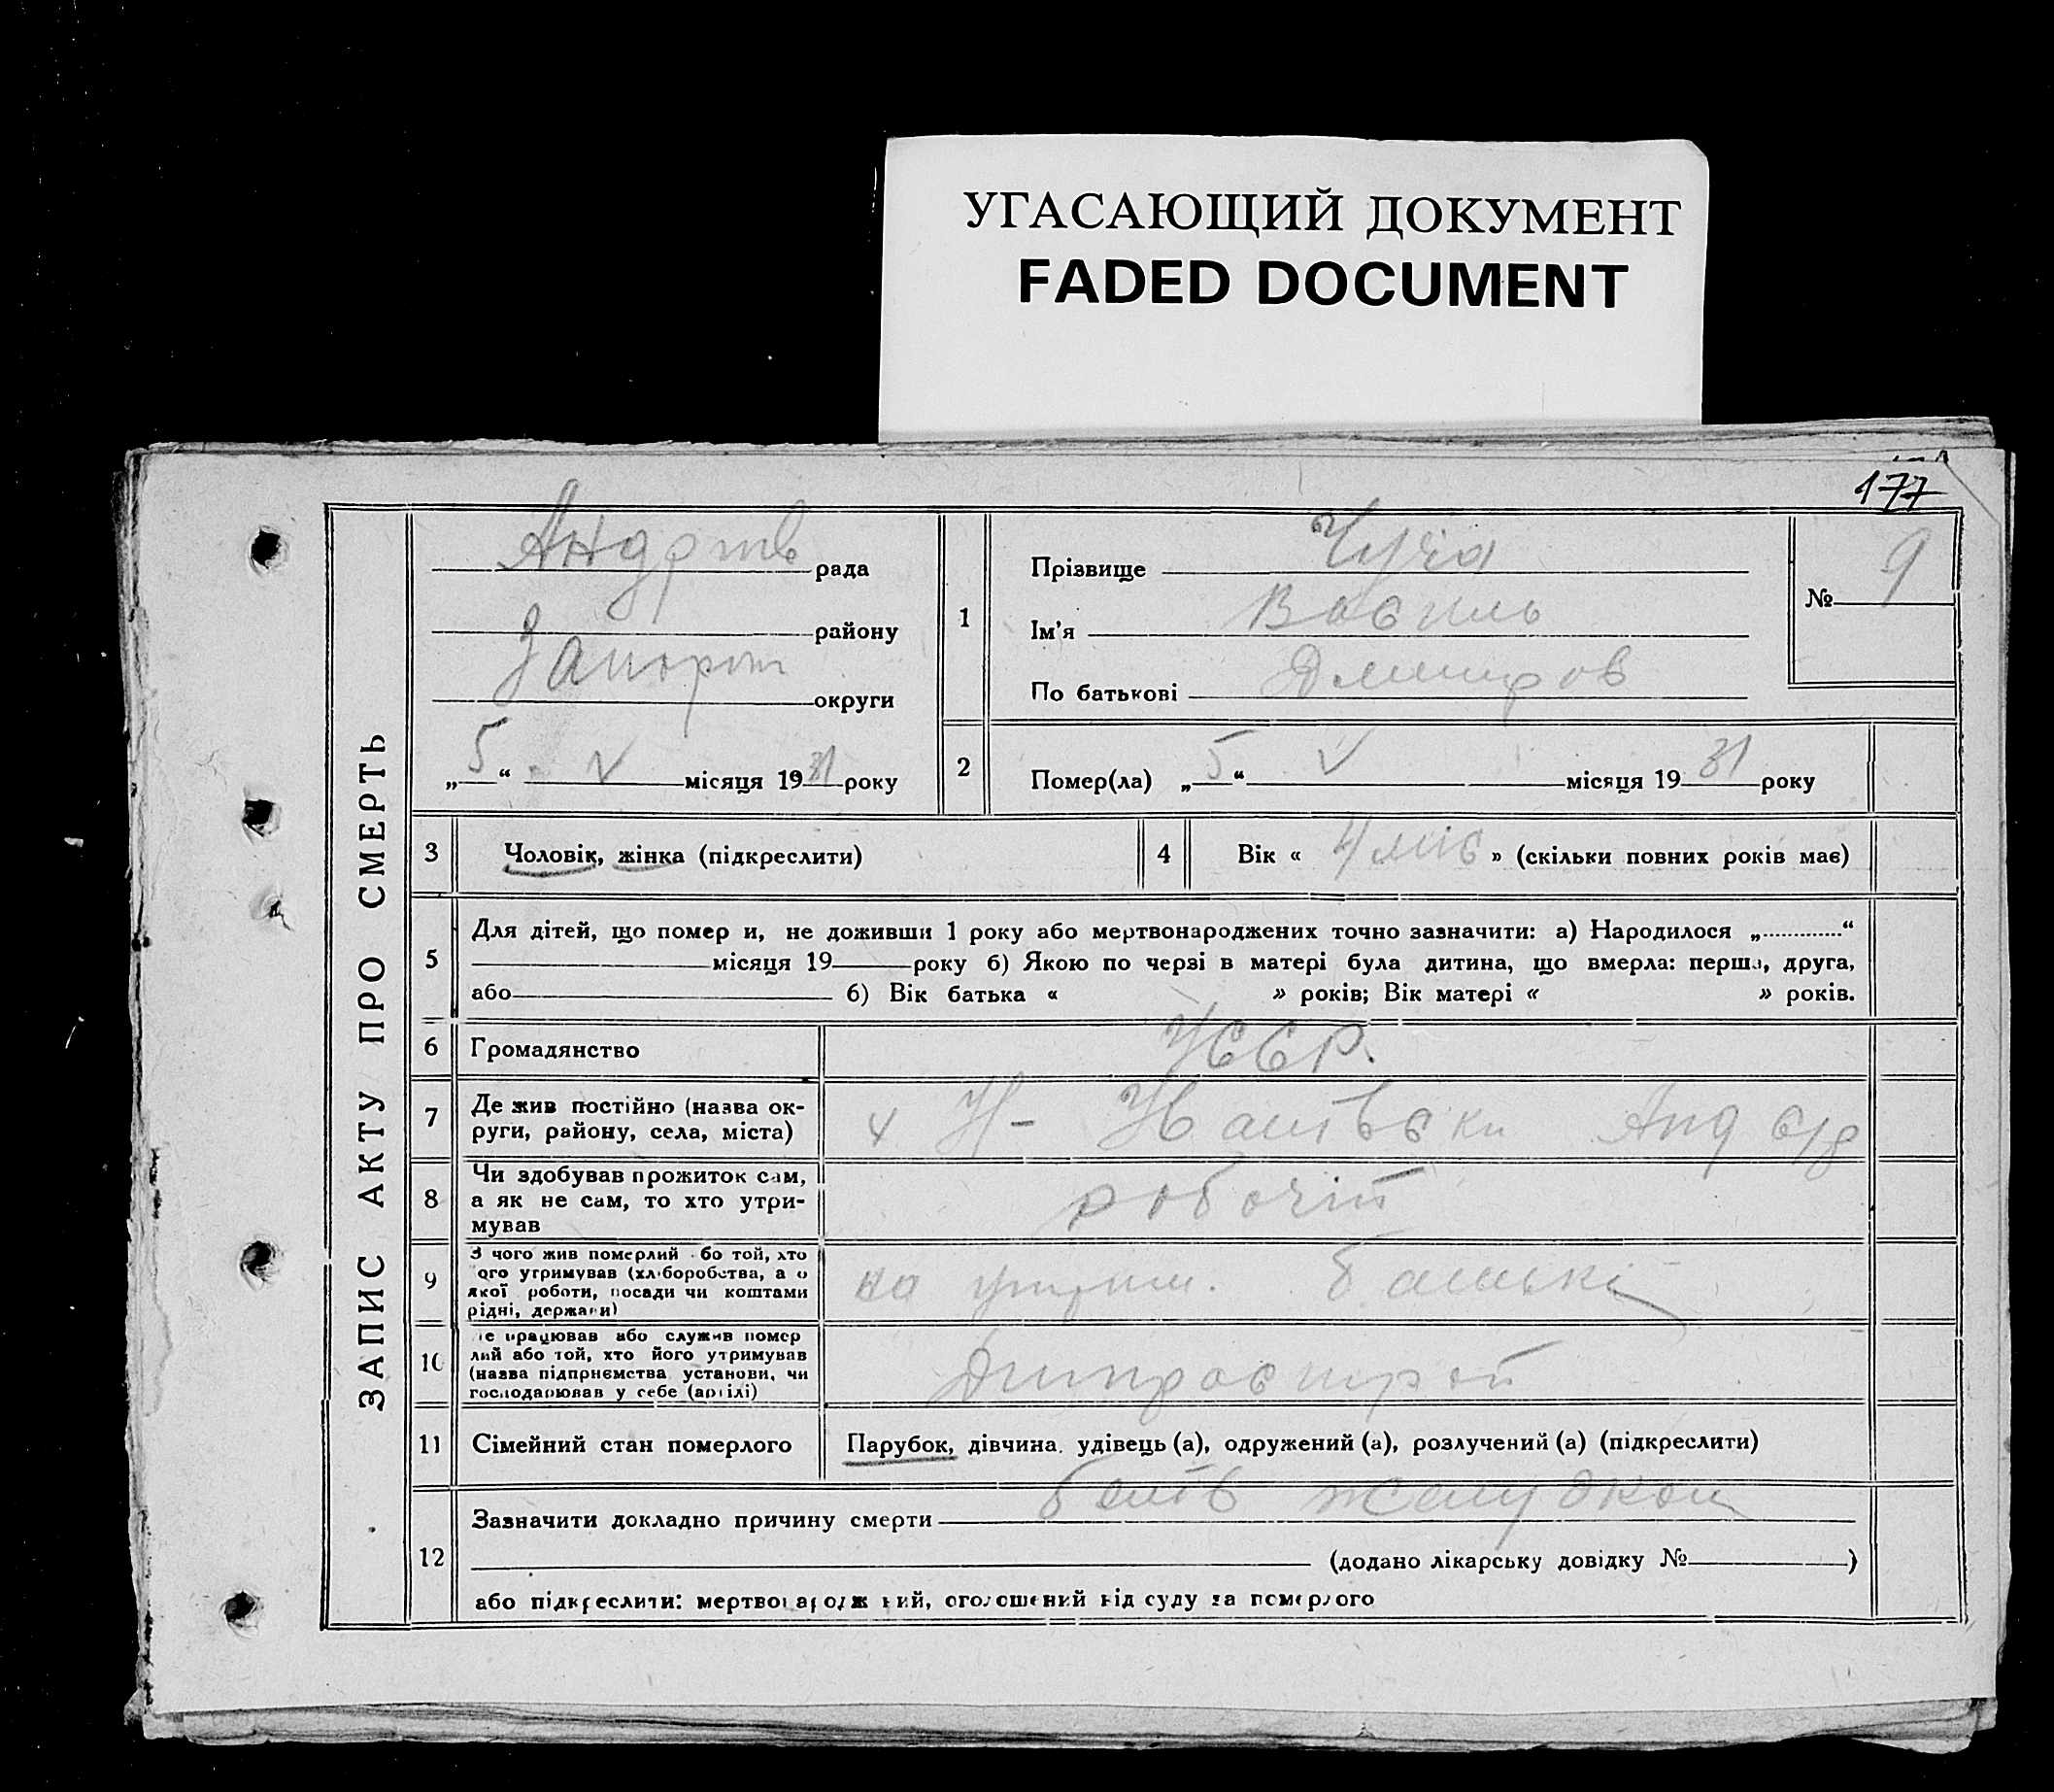 УГАСАЮЩИЙ ДОКУМЕНТ
FADED DOCUMENT
177
ЗАПИС АКТУ ПРО СМЕРТЬ
Андрів рада
району
Запоріз округи
„5“ V місяця 1931 року
1
Прізвище Чуча
Ім'я Василь
По батькові Дмитров
№ 9
2
Помер(ла) „5“ V місяця 1931 року
3
Чоловік, жінка (підкреслити)
4
Вік « 4 міс » (скільки повних років має)
5
Для дітей, що помер и, не доживши 1 року або мертвонароджених точно зазначити: а) Народилося „.............“
місяця 19 року б) Якою по черзі в матері була дитина, що вмерла: перша, друга,
або б) Вік батька « » років; Вік матері « » років.
6
Громадянство
УССР.
7
Де жив постійно (назва ок-
руги, району, села, міста)
х Н- Анд с/р
8
Чи здобував прожиток сам,
а як не сам, то хто утри-
мував
робочій
9
З чого жив померлий бо той, хто
ого утримував (хліборобства, а о
якої роботи, посади чи коштами
рідні, держави)
на утрим. батькі
10
е працював або служив помер
лий або той, хто його утримував
(назва підприємства установи, чи
господарював у себе (артілі)
Дніпрострой
11
Сімейний стан померлого
Парубок, дівчина, удівець (а), одружений (а), розлучений (а) (підкреслити)
12
Зазначити докладно причину смерти болів желудком
(додано лікарську довідку № )
або підкреслити: мертвонароджений, оголошений від суду за померлого